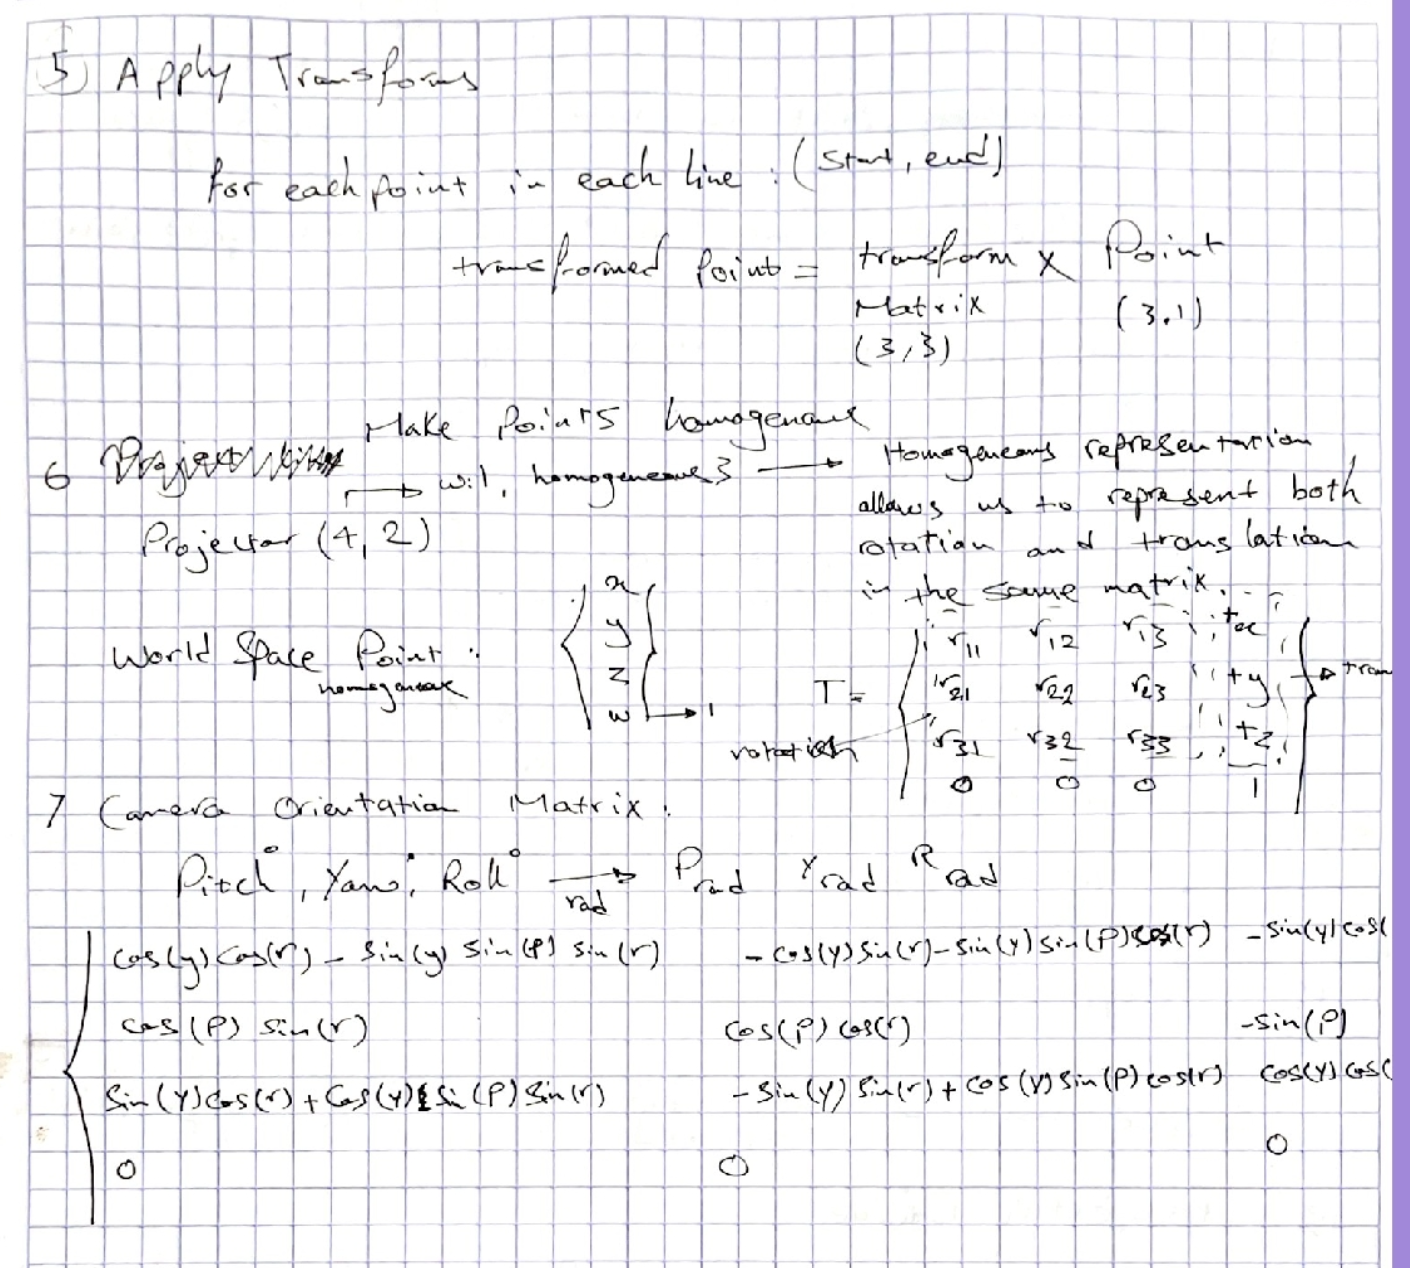 5) Apply Transforms
for each point in each line : (Start, end)
transformed Point = transform x Point
Matrix (3,1)
(3,3)
Make Points homogenous
6
w:1, homogeneous} → Homogeneous representation
allows us to represent both
rotation and translation
in the same matrix.
Projector (4,2)
World Space Point :
homogenous
x
y
z
w → 1
T =
r11 r12 r13 tx
r21 r22 r23 ty → tran
r31 r32 r33 tz
0 0 0 1
rotation
7 Camera Orientation Matrix :
Pitch°, Yaw°, Roll° → rad Prad Yrad Rrad
cos(y) cos(r) - sin(y) sin(p) sin(r) - cos(y) sin(r) - sin(y) sin(p) cos(r) - sin(y) cos(
cos(p) sin(r) cos(p) cos(r) -sin(p)
sin(y) cos(r) + cos(y) sin(p) sin(r) - sin(y) sin(r) + cos(y) sin(p) cos(r) cos(y) cos(
0 0 0